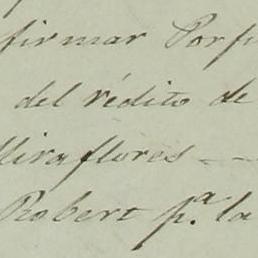 firmar Porf
del rédito de
Miraflores - -
Robert p.ª la